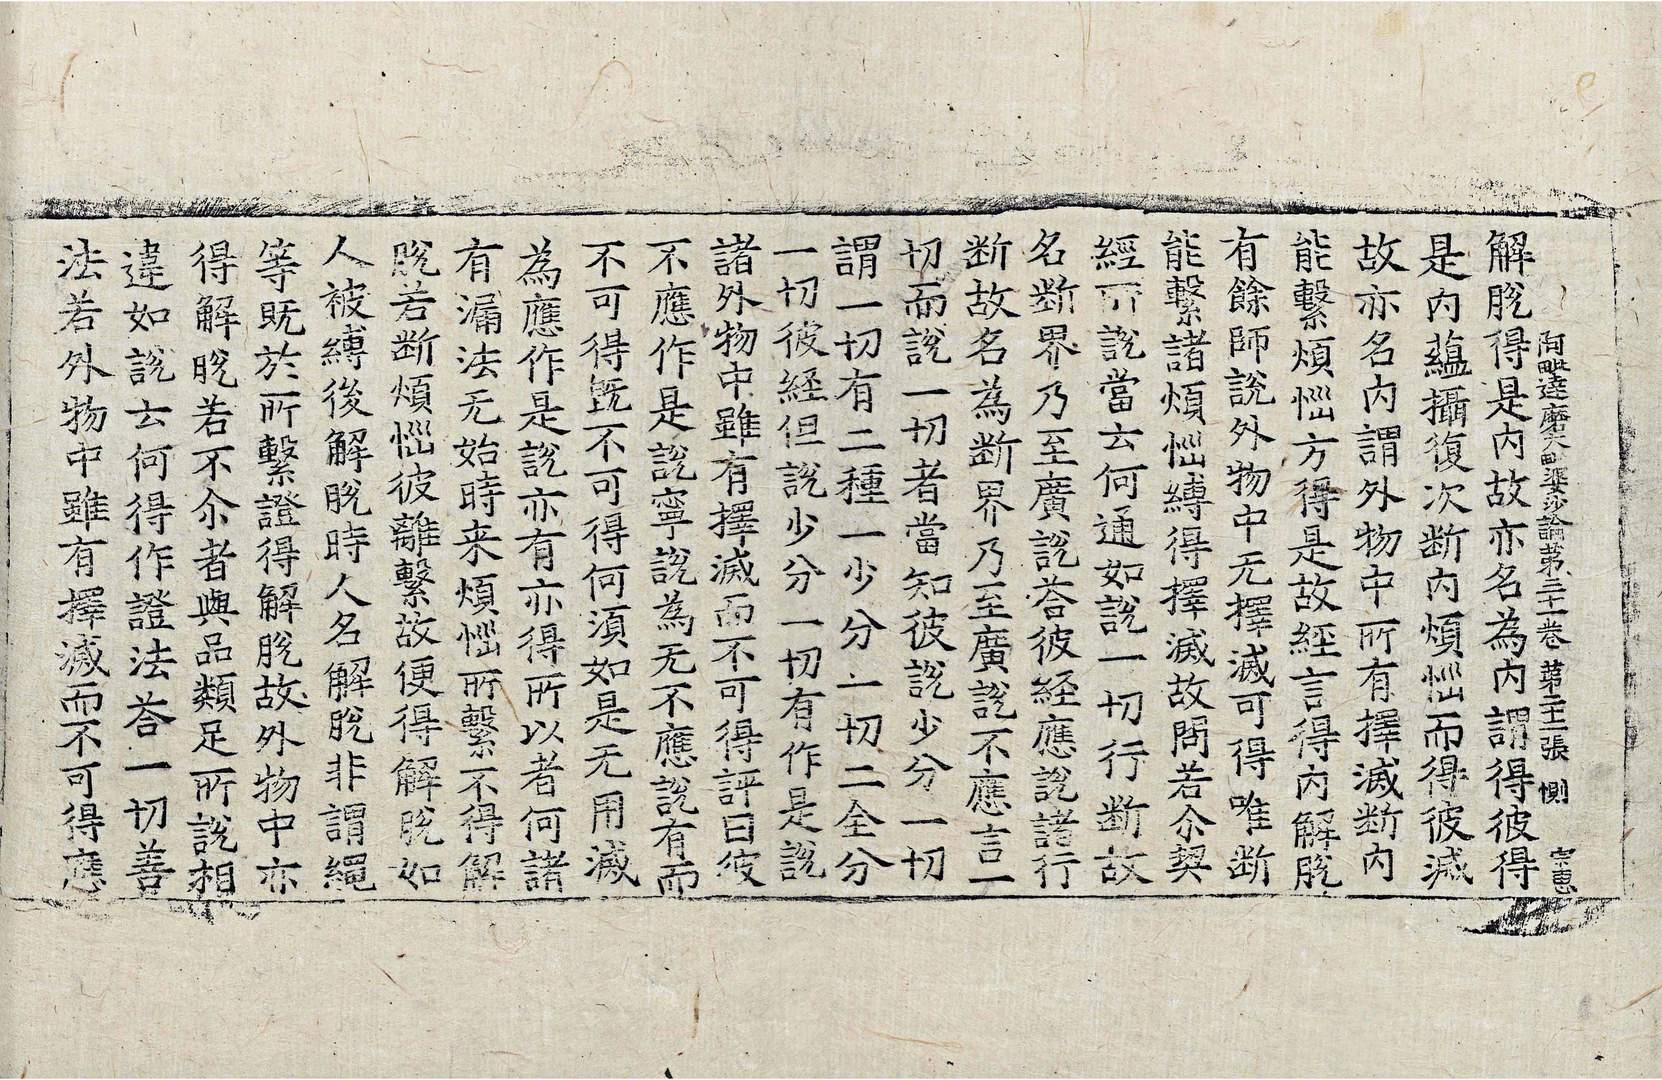 阿毗達磨大毗婆沙論第三十一卷 第二十一張 惻 宗惠
解脫得是内故亦名為内謂得彼得
是内蘊攝復次斷内煩惱而得彼滅
故亦名内謂外物中所有擇滅斷内
能繫煩惱方得是故經言得内解脫
有餘師說外物中无擇滅可得唯斷
能繫諸煩惱縛得擇滅故問若尒契
經所說當云何通如說一切行斷故
名斷界乃至廣說荅彼經應說諸行
斷故名為斷界乃至廣說不應言一
切而說一切者當知彼說少分一切
謂一切有二種一少分一切二全分
一切彼經但說少分一切有作是說
諸外物中雖有擇滅而不可得評曰彼
不應作是說寧說為无不應說有而
不可得旣不可得何湏如是无用滅
為應作是說亦有亦得所以者何諸
有漏法无始時来煩惱所繫不得解
脫若斷煩惱彼離繫故便得解脫如
人被縛後解脫時人名解脫非謂繩
等旣於所繫證得解脫故外物中亦
得解脫若不尒者與品類足所說相
違如說云何得作證法荅一切善
法若外物中雖有擇滅而不可得應